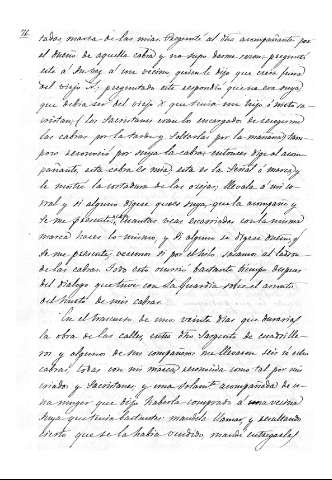 76
tadas marca de las mias. Pregunté al dho acompañante por
el dueño de aquella cabra y no supo darme razon. pregunté
este á su vez á un vecino quien le dijo que creia fuera
del viejo X. preguntado este respondio que no era suya
que debia ser del viejo X que tenia un hijo ó nieto sa-
cristan (los Sacristanes eran los encargados de recogerme
las cabras por la tarde y soltarlas por la mañana) tam-
poco reconocio por suya la cabra: entonces dije al acom-
pañante, esta cabra es mia, esta es la señal ó marca y
le mostré la cortadura de las orejas; llevala á mi cor-
ral y si alguno dijere que es suya, que la acompañe y
se me presente; cuantas veas marcadas con la misma
marca haces lo mismo, y si alguno se dijese dueño, y
se me presenta, veremos si por el hilo sacamos al ladron
de las cabras. Todo esto ocurrio bastante tiempo despues
del dialogo que tuve con la Guardia sobre el asunto
del hurto de mis cabras.
En el trascurso de unos veinte dias que duraria
la obra de las calles, entre dho Sargento de cuadrille-
ros y algunos de sus compañeros me llevaron seis ú ocho
cabras, todas con mi marca reconocida como tal por mis
criados y Sacristanes, y una solamte acompañada de u-
na muger que dijo haberla comprado á una vecina
suya que tenia bastantes: mandela llamar, y resultando
cierto que se la habia vendido, mandé entregarla,